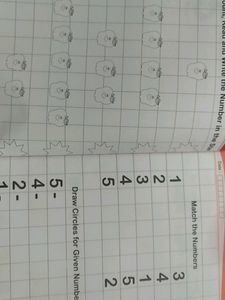 Read and Write the Number in the
Date
Match the Numbers
1 3
2 4
3 1
4 5
5 2
Draw Circles for Given
5 -
4 -
2 -
1 -